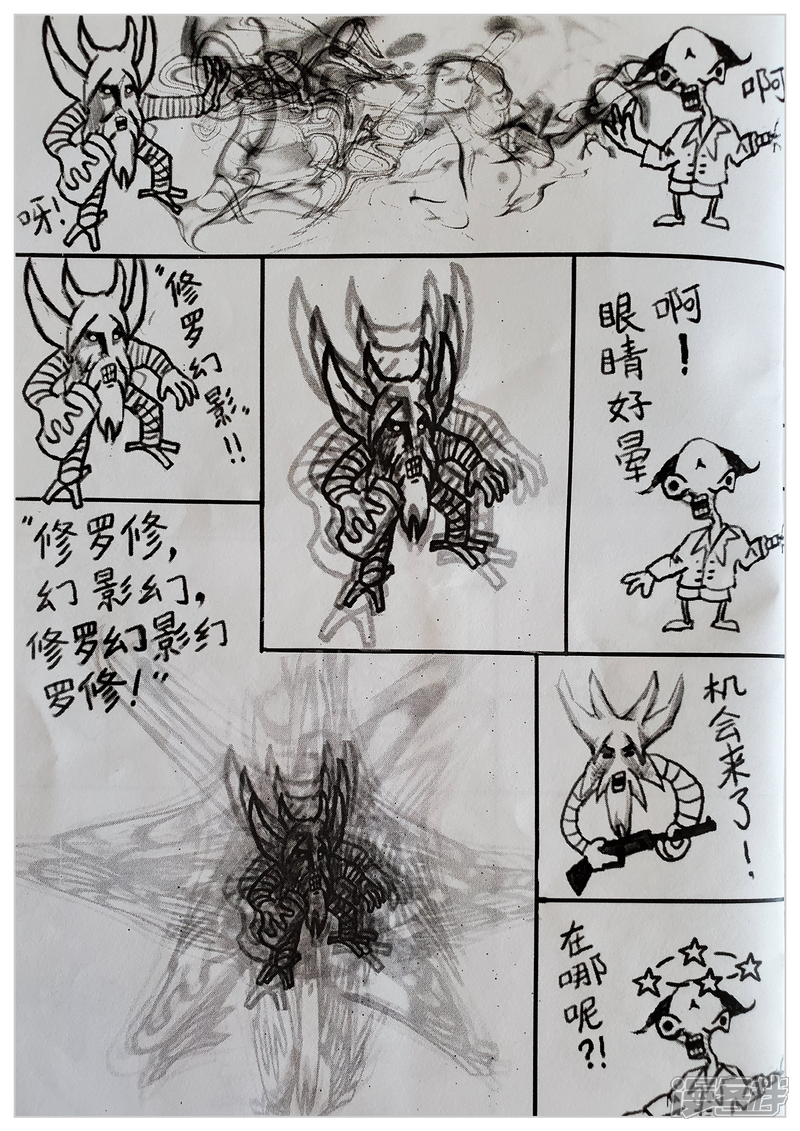 呀!
啊
"修罗幻影"!!
啊!
眼睛好晕
"修罗修,
幻影幻,
修罗幻影幻
罗修!"
机会来了!
在哪呢?!
漫客栈